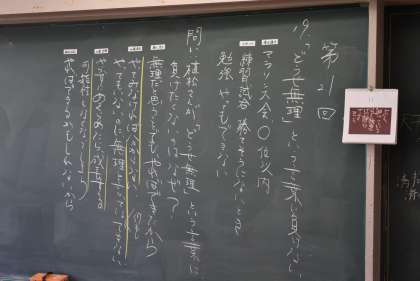 第21回
「どうせ無理」という言葉に負けない
マラソン大会 〇位以内
練習試合 勝てそうにないとき
勉強 やってもできない
問い 植松さんが「どうせ無理」という言葉に
負けたくないのはなぜ?
無理だと思うことでもやればできるから
やってみなければわからない
やってもいないのに無理といっていてはできない
やればできるかもしれないから